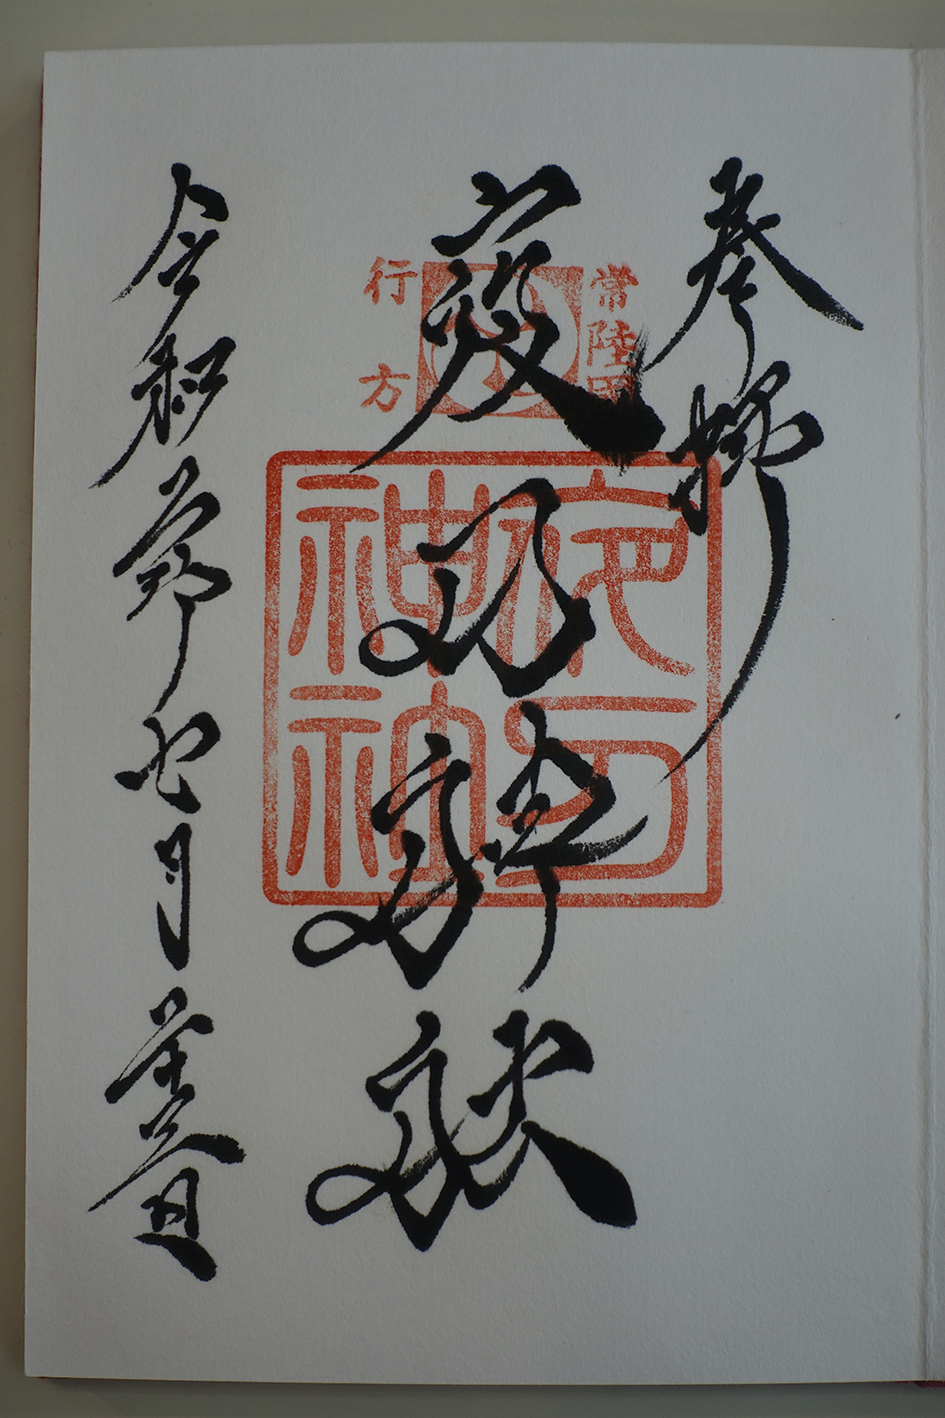 奉拝
常陸国
行方
夜刀神社
夜刀神社
令和
七月
日